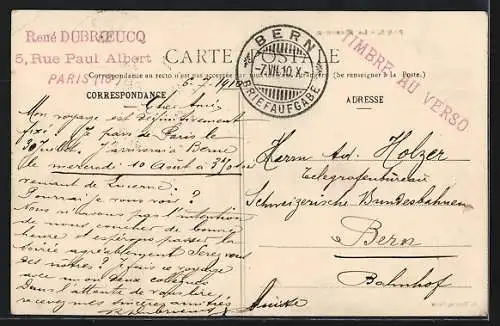 René DUBRŒUCQ
5, Rue Paul Albert
PARIS
CARTE POSTALE
BERN
-7.VII.10.X-
BRIEFAUFGABE
TIMBRE AU VERSO
Correspondance au recto n'est pas acceptée par (be renseigner à la Poste.)
CORRESPONDANCE
ADRESSE
6-7-1910
Cher Ami
Mon voyage est définitivement
fixé. Je pars de Paris le
30 Juillet. J'arriverai à Berne
le mercredi 10 Août à 3h
venant de Lucerne.
Pourrai je vous voir?
Nous n'avons pas l'intention
de nous coucher de bonne
heure et espérons passer la
soirée agréablement. Serez vous
des nôtres? Je fais ce voyage
avec un ou deux collègues
Dans l'attente de vous lire,
recevez mes sincères amitiés
Herrn Ad. Holzer
Telegrafenbureau
Schweizerische Bundesbahnen
Bern
Bahnhof
Suisse